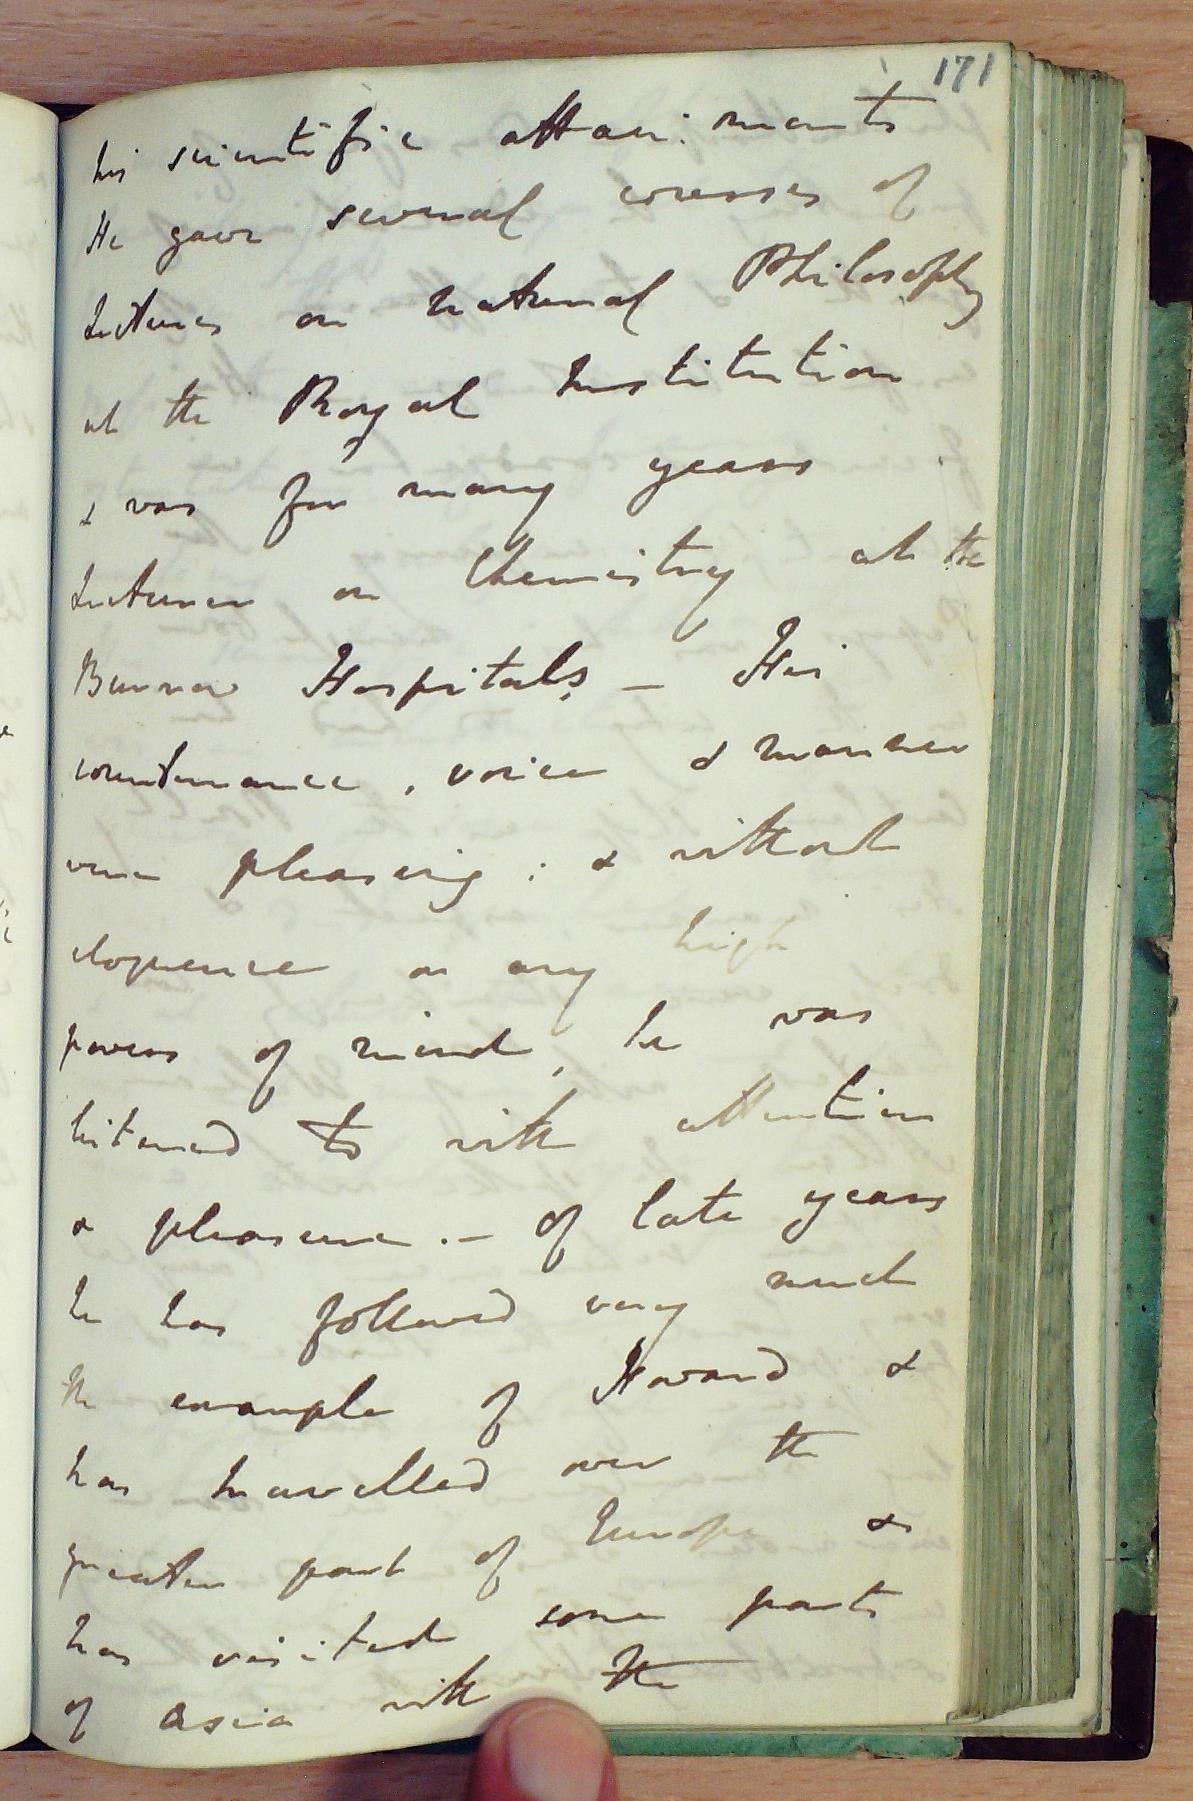 171
his scientific attainments
He gave several coursses of
Lectures on natural Philosophy
at the Royal Institution
& was for many years
Lecturer on Chemistry at the
Burrow Hospitals – His
countenance, voice & manner
were pleasing : & without
eloquence or any high
powers of mind, he was
listened to with attention
& pleasure .– Of late years
he has followed very much
the example of Howard &
has travelled over the
greater part of Europe &
has visited some parts
of Asia with the